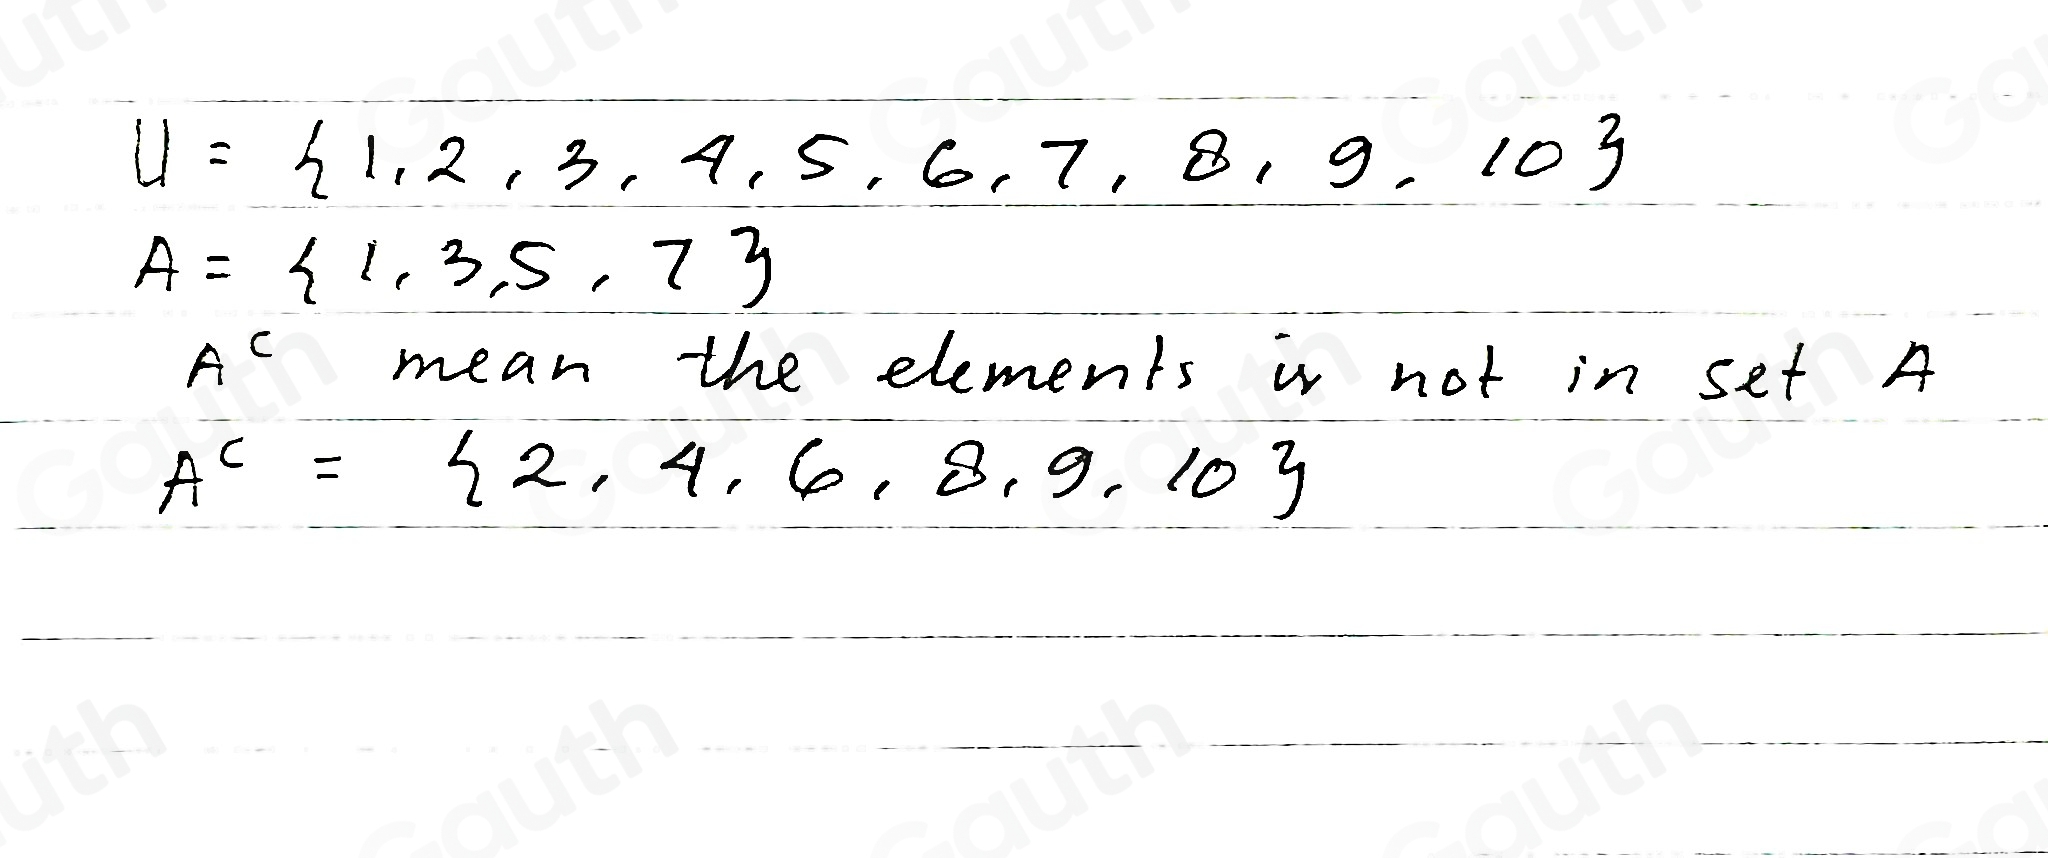 U = {1, 2, 3, 4, 5, 6, 7, 8, 9, 10}
A = {1, 3, 5, 7}
Aᶜ mean the elements is not in set A
Aᶜ = {2, 4, 6, 8, 9, 10}